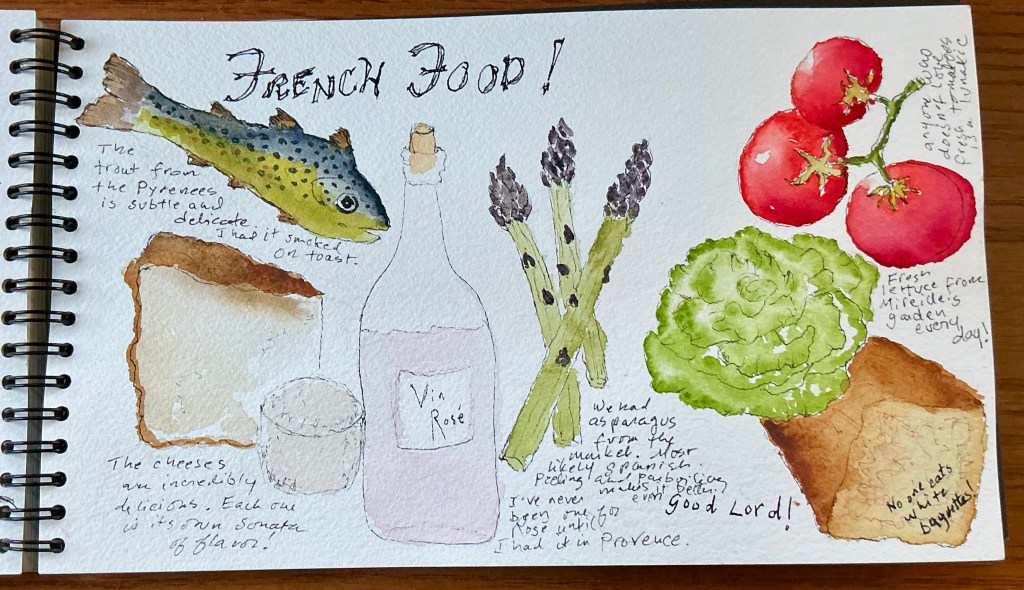 FRENCH FOOD!
The
trout from
the Pyrenees
is subtle and
delicate.
I had it smoked
on toast.
anyone who
doesn't love
fresh tomatoes
is a lunatic
Fresh
lettuce from
Mireide's
garden
every
day!
Vin
Rosé
The cheeses
are incredibly
delicious. Each one
is its own sonata
of flavor!
We had
asparagus
from the
market. Most
likely Spanish.
Peeling and parboiling
makes it better.
even
Good Lord!
I've never
been one for
Rosé until
I had it in Provence.
No one eats
white
baguettes!